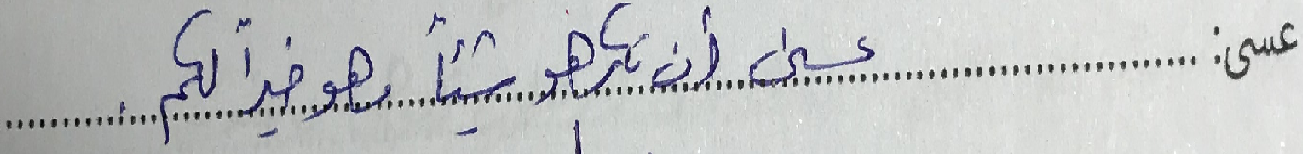 عسى: عسى أن تكرهو شيئاً وهو خيراً لكم.